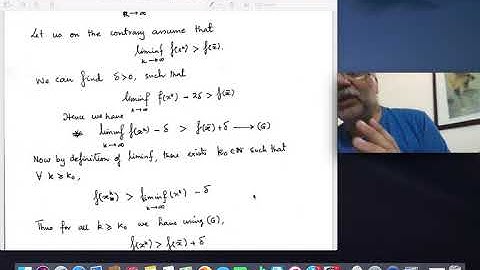 k→∞
Let us on the contrary assume that
liminf f(x^k) > f(x̄).
k→∞
We can find δ>0, such that
liminf f(x^k) − 2δ > f(x̄)
k→∞
Hence we have
liminf f(x^k) − δ > f(x̄) + δ ⟶ (G)
k→∞
Now by definition of liminf, there exists k₀∈ℕ such that
∀ k ≥ k₀,
f(x^k) > liminf f(x^k) − δ
k→∞
Thus for all k ≥ k₀ we have using (G),
f(x^k) > f(x̄) + δ